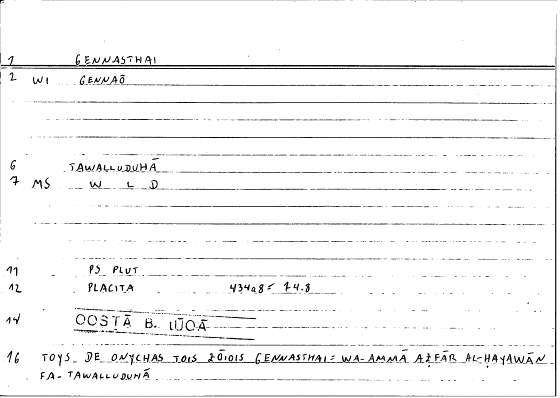 1 GENNASTHAI
2 WI GENNAŌ
6 TAWALLUDUHĀ
7 MS W L D
11 PS PLUT
12 PLACITA 434a8 = 74.8
14 QOSṬĀ B. LŪQĀ
16 TOYS DE ONYCHAS TOIS ZŌIOIS GENNASTHAI = WA-AMMĀ AẒFĀR AL-ḤAYAWĀN
FA-TAWALLUDUHĀ